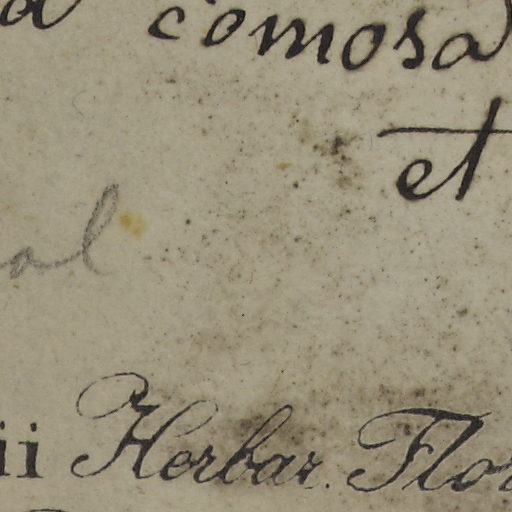 a comosa
et
al
ii Herbar. Flor